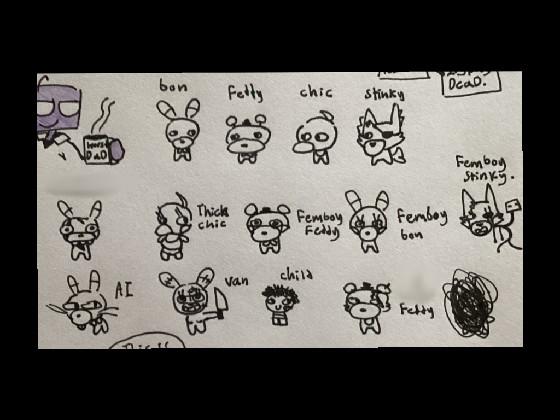 bon
Fetty
chic
Stinky
DeaD.
Worst
DaD
Femboy
Stinky.
Thick
chic
Femboy
Feddy
Femboy
bon
AI
van
child
Fetty
This is